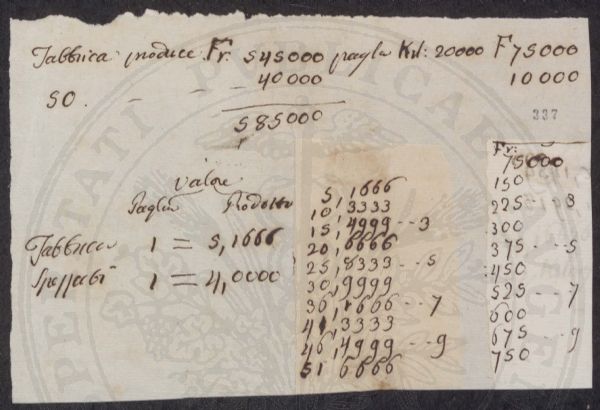 Fabbrica produce Fr. 545000 paglia Kil: 20000 F 75000
50. - - - 40000 10000
585000
337
valore
Paglia Prodotto
Fabbrica 1 = 5,1666
1 = 4,0000
5,1666
10,3333
15,4999 - - 3
20,6666
25,8333 - - 5
30,9999
36,1666 - - 7
41,3333
46,4999 - - 9
51 6666
Fr:
75000
150
225 - - 3
300
375 - - 5
450
525 - - 7
600
675 - - 9
750